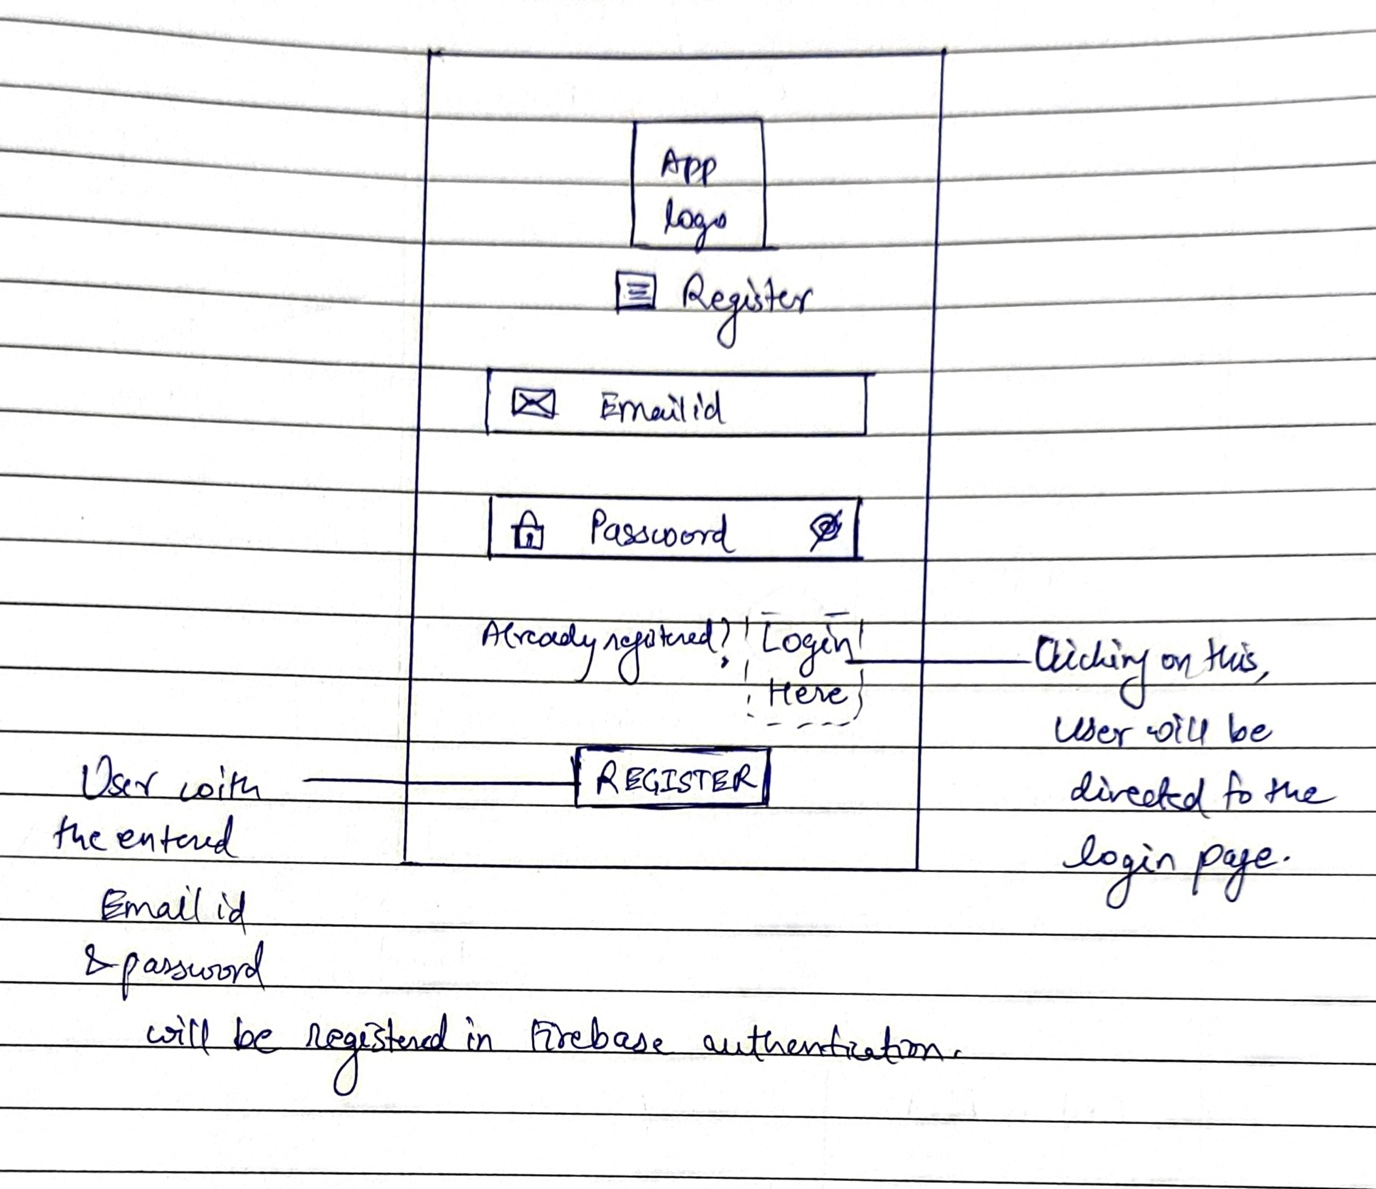 App
logo
Register
Email id
Password
Already registered? Login
Here
Clicking on this,
User will be
directed to the
login page.
REGISTER
User with
the entered
Email id
& password
will be registered in Firebase authentication.